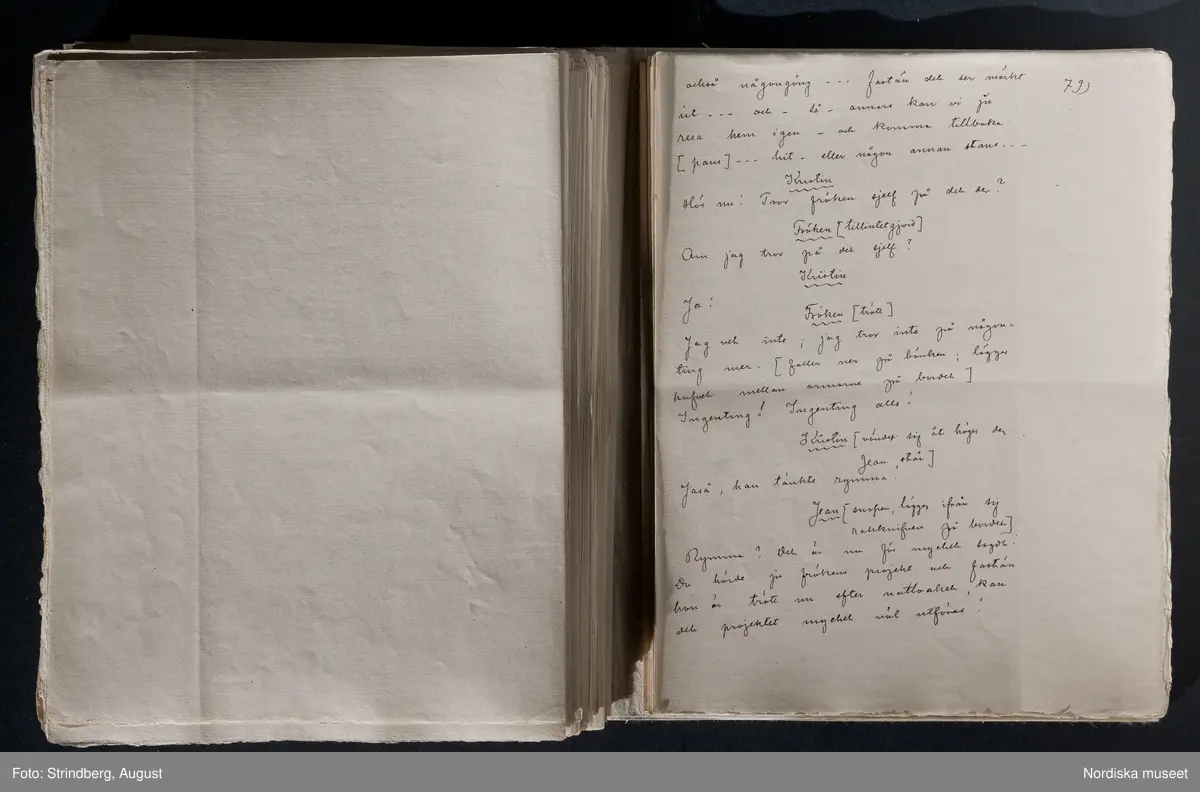 79)
också någongång --- fastän det ser mörkt
ut --- och - så - annars kan vi ju
resa hem igen - och komma tillbaka.
[paus] --- hit - eller någon annan stans ---
Kristin
Hör nu! Tror fröken sjelf på det der?
Fröken [tillintetgjord]
Om jag tror på det sjelf?
Kristin
Ja!
Fröken [trött]
Jag vet inte; jag tror inte på någon=
ting mer. [faller ner på bänken; lägger
hufvet mellan armarne på bordet]
Ingenting! Ingenting alls!
Kristin [vänder sig åt höger der
Jean står]
Jaså, han tänkte rymma.
Jean [snopen, lägger ifrån sig
rakknifven på bordet]
Rymma? Det är nu för mycket sagdt.
Du hörde ju frökens projekt och fastän
hon är trött nu efter nattvaket, kan
det projektet mycket väl utföras!
Foto: Strindberg, August
Nordiska museet